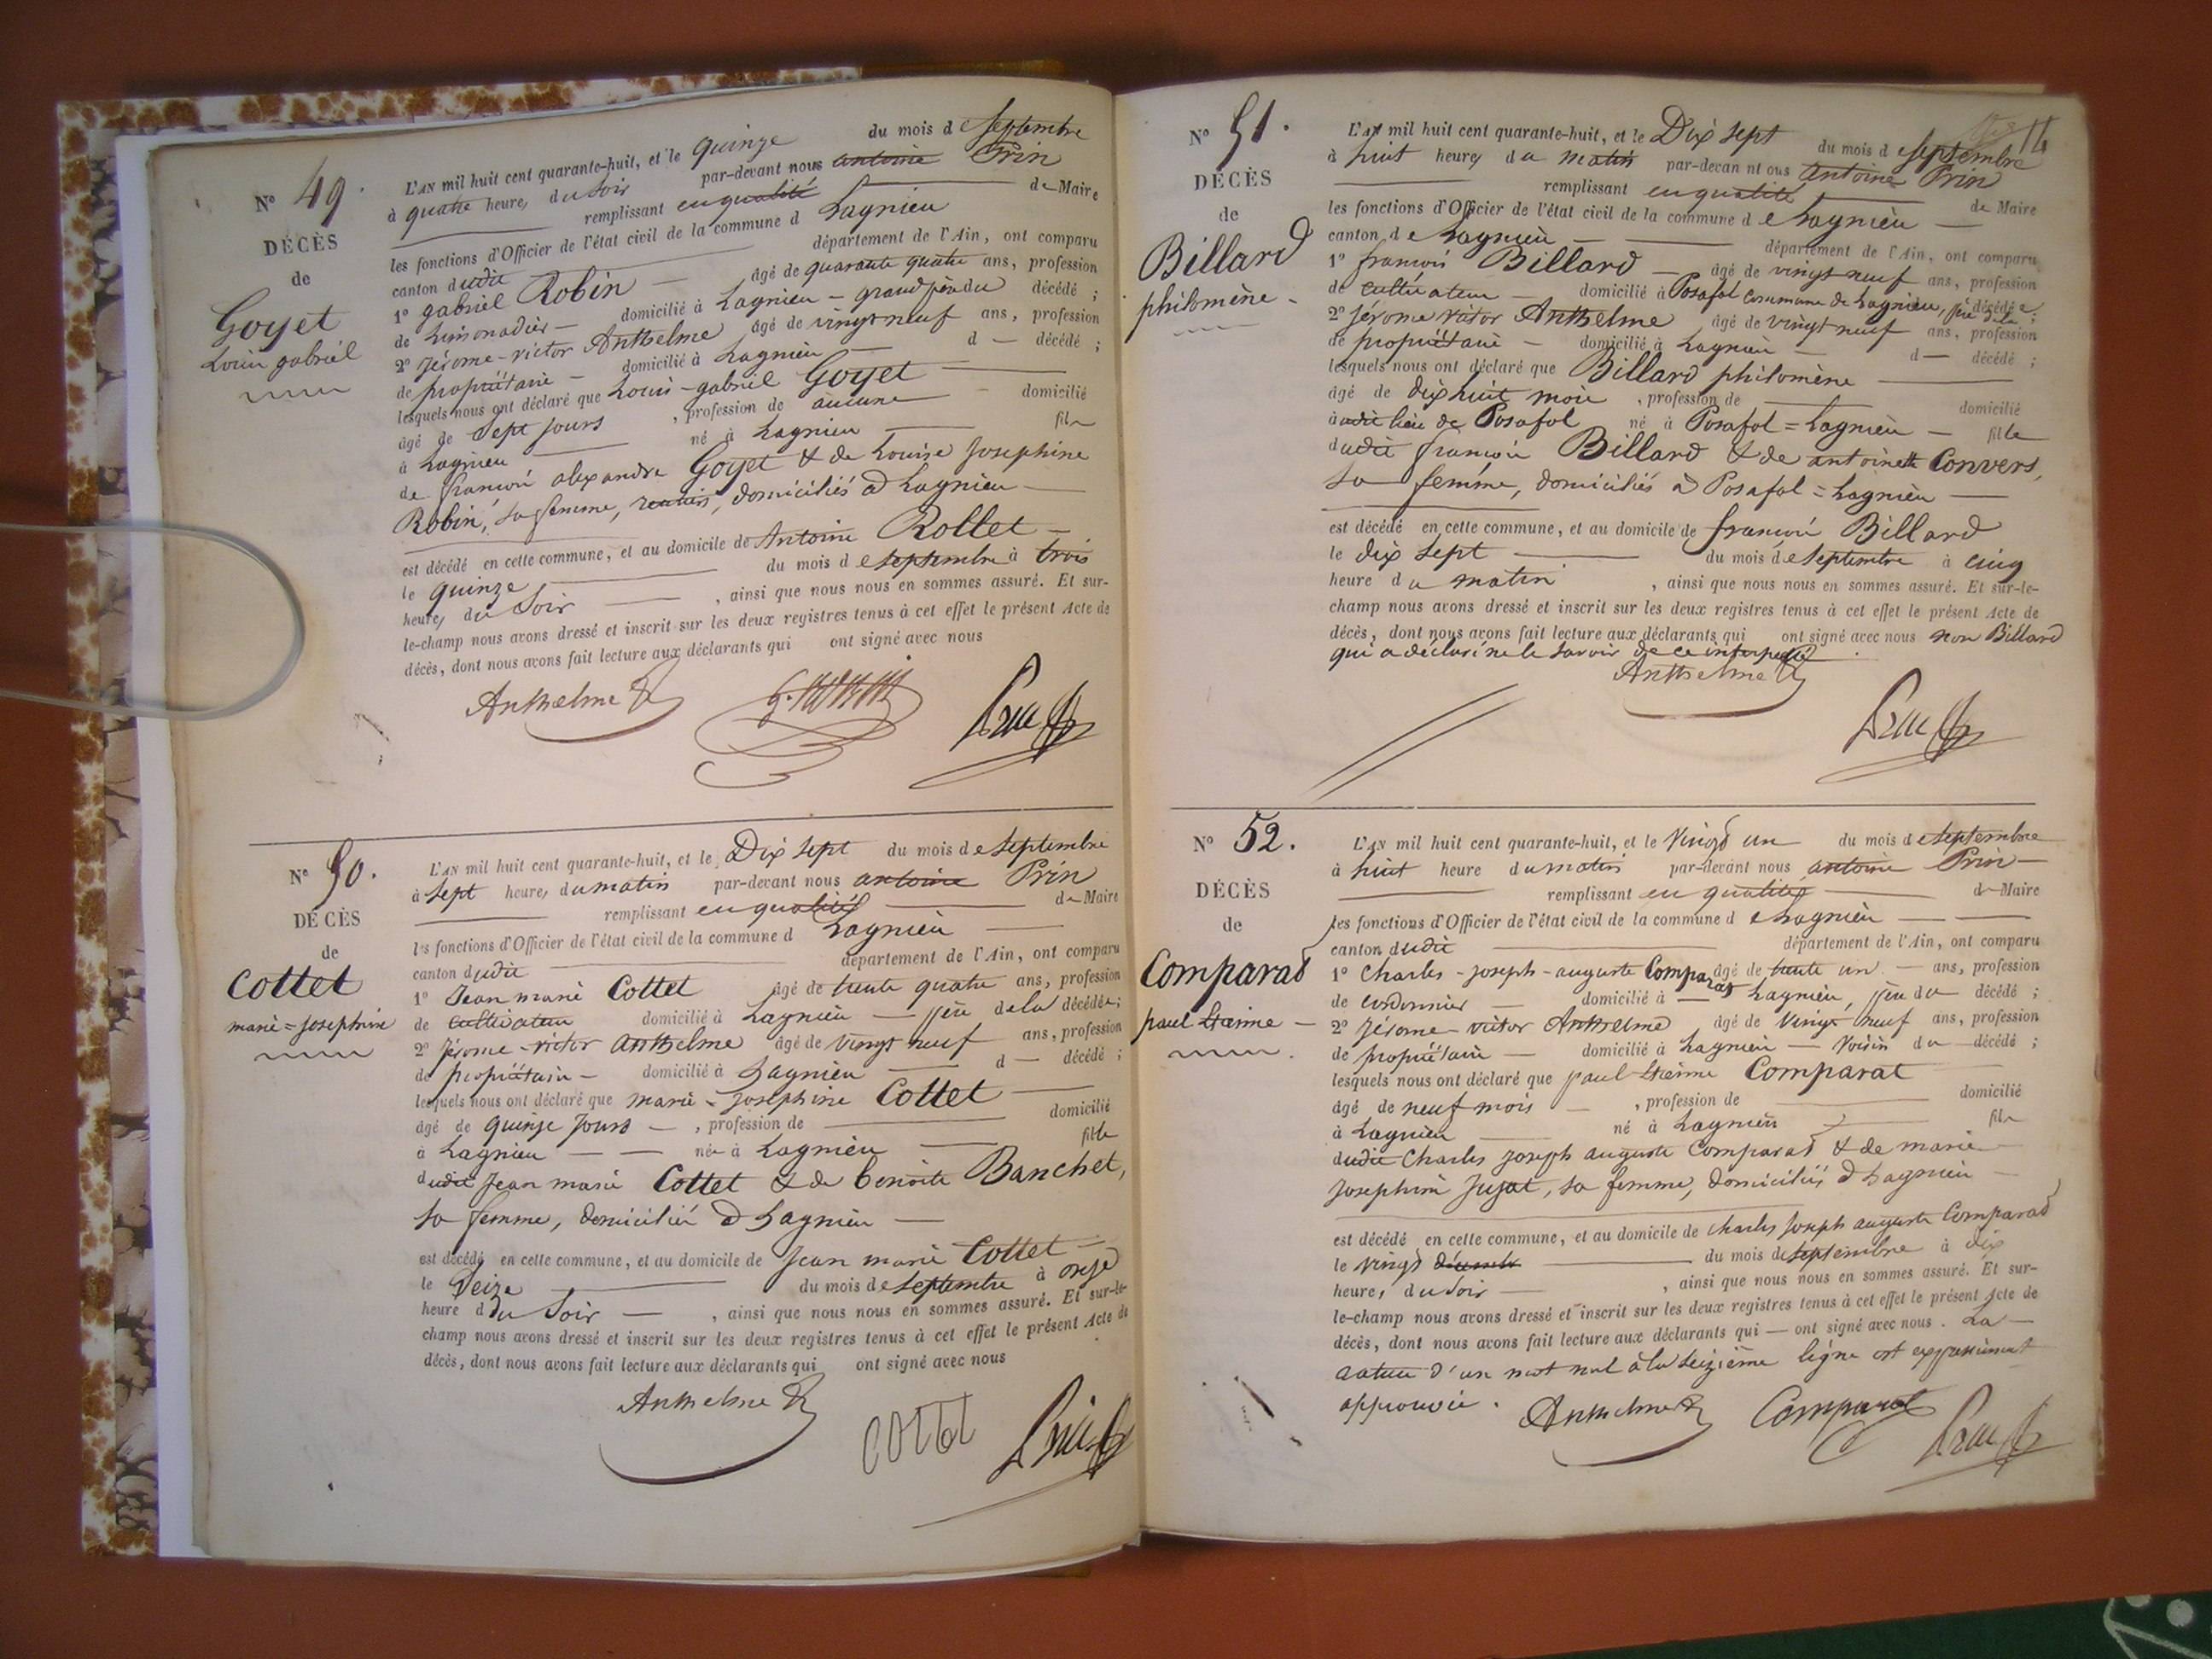 N° 49.
DÉCÈS
de
Goyet
Louis gabriel
L'AN mil huit cent quarante-huit, et le quinze du mois de Septembre
à quatre heures du soir par-devant nous antoine Prin
remplissant en qualité de Maire
les fonctions d'Officier de l'état civil de la commune d Lagnieu
canton dudit département de l'Ain, ont comparu
1° gabriel Robin âgé de quarante quatre ans, profession
de Limonadier domicilié à Lagnieu grand père du décédé ;
2° Jérome-victor Anthelme âgé de vingt neuf ans, profession
de propriétaire domicilié à Lagnieu d décédé ;
lesquels nous ont déclaré que Louis-gabriel Goyet
âgé de Sept jours , profession de aucune domicilié
à Lagnieu né à Lagnieu fils
de françois alexandre Goyet & de Louise Josephine
Robin, sa femme, rentiers, domiciliés à Lagnieu
est décédé en cette commune, et au domicile de Antoine Rollet
le quinze du mois de septembre à trois
heures du Soir , ainsi que nous nous en sommes assuré. Et sur-
le-champ nous avons dressé et inscrit sur les deux registres tenus à cet effet le présent Acte de
décès, dont nous avons fait lecture aux déclarants qui ont signé avec nous
Anthelme
N° 50.
DÉCÈS
de
Cottet
marie=Josephine
L'AN mil huit cent quarante-huit, et le Dix sept du mois de Septembre
à sept heures du matin par-devant nous antoine Prin
remplissant en qualité de Maire
les fonctions d'Officier de l'état civil de la commune d Lagnieu
canton dudit département de l'Ain, ont comparu
1° Jean marie Cottet âgé de trente quatre ans, profession
de cultivateur domicilié à Lagnieu père de la décédée ;
2° Jérome-victor Anthelme âgé de vingt neuf ans, profession
de propriétaire domicilié à Lagnieu d décédé ;
lesquels nous ont déclaré que marie-Josephine Cottet
âgé de quinze Jours , profession de domicilié
à Lagnieu née à Lagnieu fille
dudit Jean marie Cottet & de benoite Banchet,
sa femme, domiciliés à Lagnieu
est décédé en cette commune, et au domicile de Jean marie Cottet
le Seize du mois de Septembre à onze
heure d du Soir , ainsi que nous nous en sommes assuré. Et sur-le-
champ nous avons dressé et inscrit sur les deux registres tenus à cet effet le présent Acte de
décès, dont nous avons fait lecture aux déclarants qui ont signé avec nous
Anthelme
Cottet Prin
14
N° 51.
DÉCÈS
de
Billard
philomène
L'AN mil huit cent quarante-huit, et le Dix sept du mois de septembre
à huit heures du matin par-devan nt ous antoine Prin
remplissant en qualité de Maire
les fonctions d'Officier de l'état civil de la commune de Lagnieu
canton de Lagnieu département de l'Ain, ont comparu
1° françois Billard âgé de vingt neuf ans, profession
de cultivateur domicilié à Posafol commune de Lagnieu, père de la décédée ;
2° Jérome victor Anthelme âgé de vingt neuf ans, profession
de propriétaire domicilié à Lagnieu d décédé ;
lesquels nous ont déclaré que Billard philomène
âgé de dix huit mois , profession de domicilié
audit lieu de Posafol né à Posafol = Lagnieu fille
dudit françois Billard & de antoinette Convers,
sa femme, domiciliés à Posafol = Lagnieu
est décédé en cette commune, et au domicile de françois Billard
le dix sept du mois de Septembre à cinq
heure du matin , ainsi que nous nous en sommes assuré. Et sur-le-
champ nous avons dressé et inscrit sur les deux registres tenus à cet effet le présent Acte de
décès, dont nous avons fait lecture aux déclarants qui ont signé avec nous non Billard
qui a déclaré ne le savoir de ce interpellé
Anthelme
Prin
N° 52.
DÉCÈS
de
Comparat
paul Etienne
L'AN mil huit cent quarante-huit, et le vingt un du mois de Septembre
à huit heure du matin par-devant nous antoine Prin
remplissant en qualité de Maire
les fonctions d'Officier de l'état civil de la commune de Lagnieu
canton dudit département de l'Ain, ont comparu
1° Charles-Joseph-auguste Comparat âgé de trente un ans, profession
de cordonnier domicilié à Lagnieu, père du décédé ;
2° Jérome-victor Anthelme âgé de vingt neuf ans, profession
de propriétaire domicilié à Lagnieu voisin du décédé ;
lesquels nous ont déclaré que paul-Etienne Comparat
âgé de neuf mois , profession de domicilié
à Lagnieu né à Lagnieu fils
dudit Charles Joseph auguste Comparat & de marie
Josephine Jujat, sa femme, domiciliés à Lagnieu
est décédé en cette commune, et au domicile de Charles Joseph auguste Comparat
le vingt du mois de septembre à dix
heures du soir , ainsi que nous nous en sommes assuré. Et sur-
le-champ nous avons dressé et inscrit sur les deux registres tenus à cet effet le présent Acte de
décès, dont nous avons fait lecture aux déclarants qui ont signé avec nous. La
rature d'un mot nul à la seizième ligne est expressément
approuvée.
Anthelme Comparat Prin